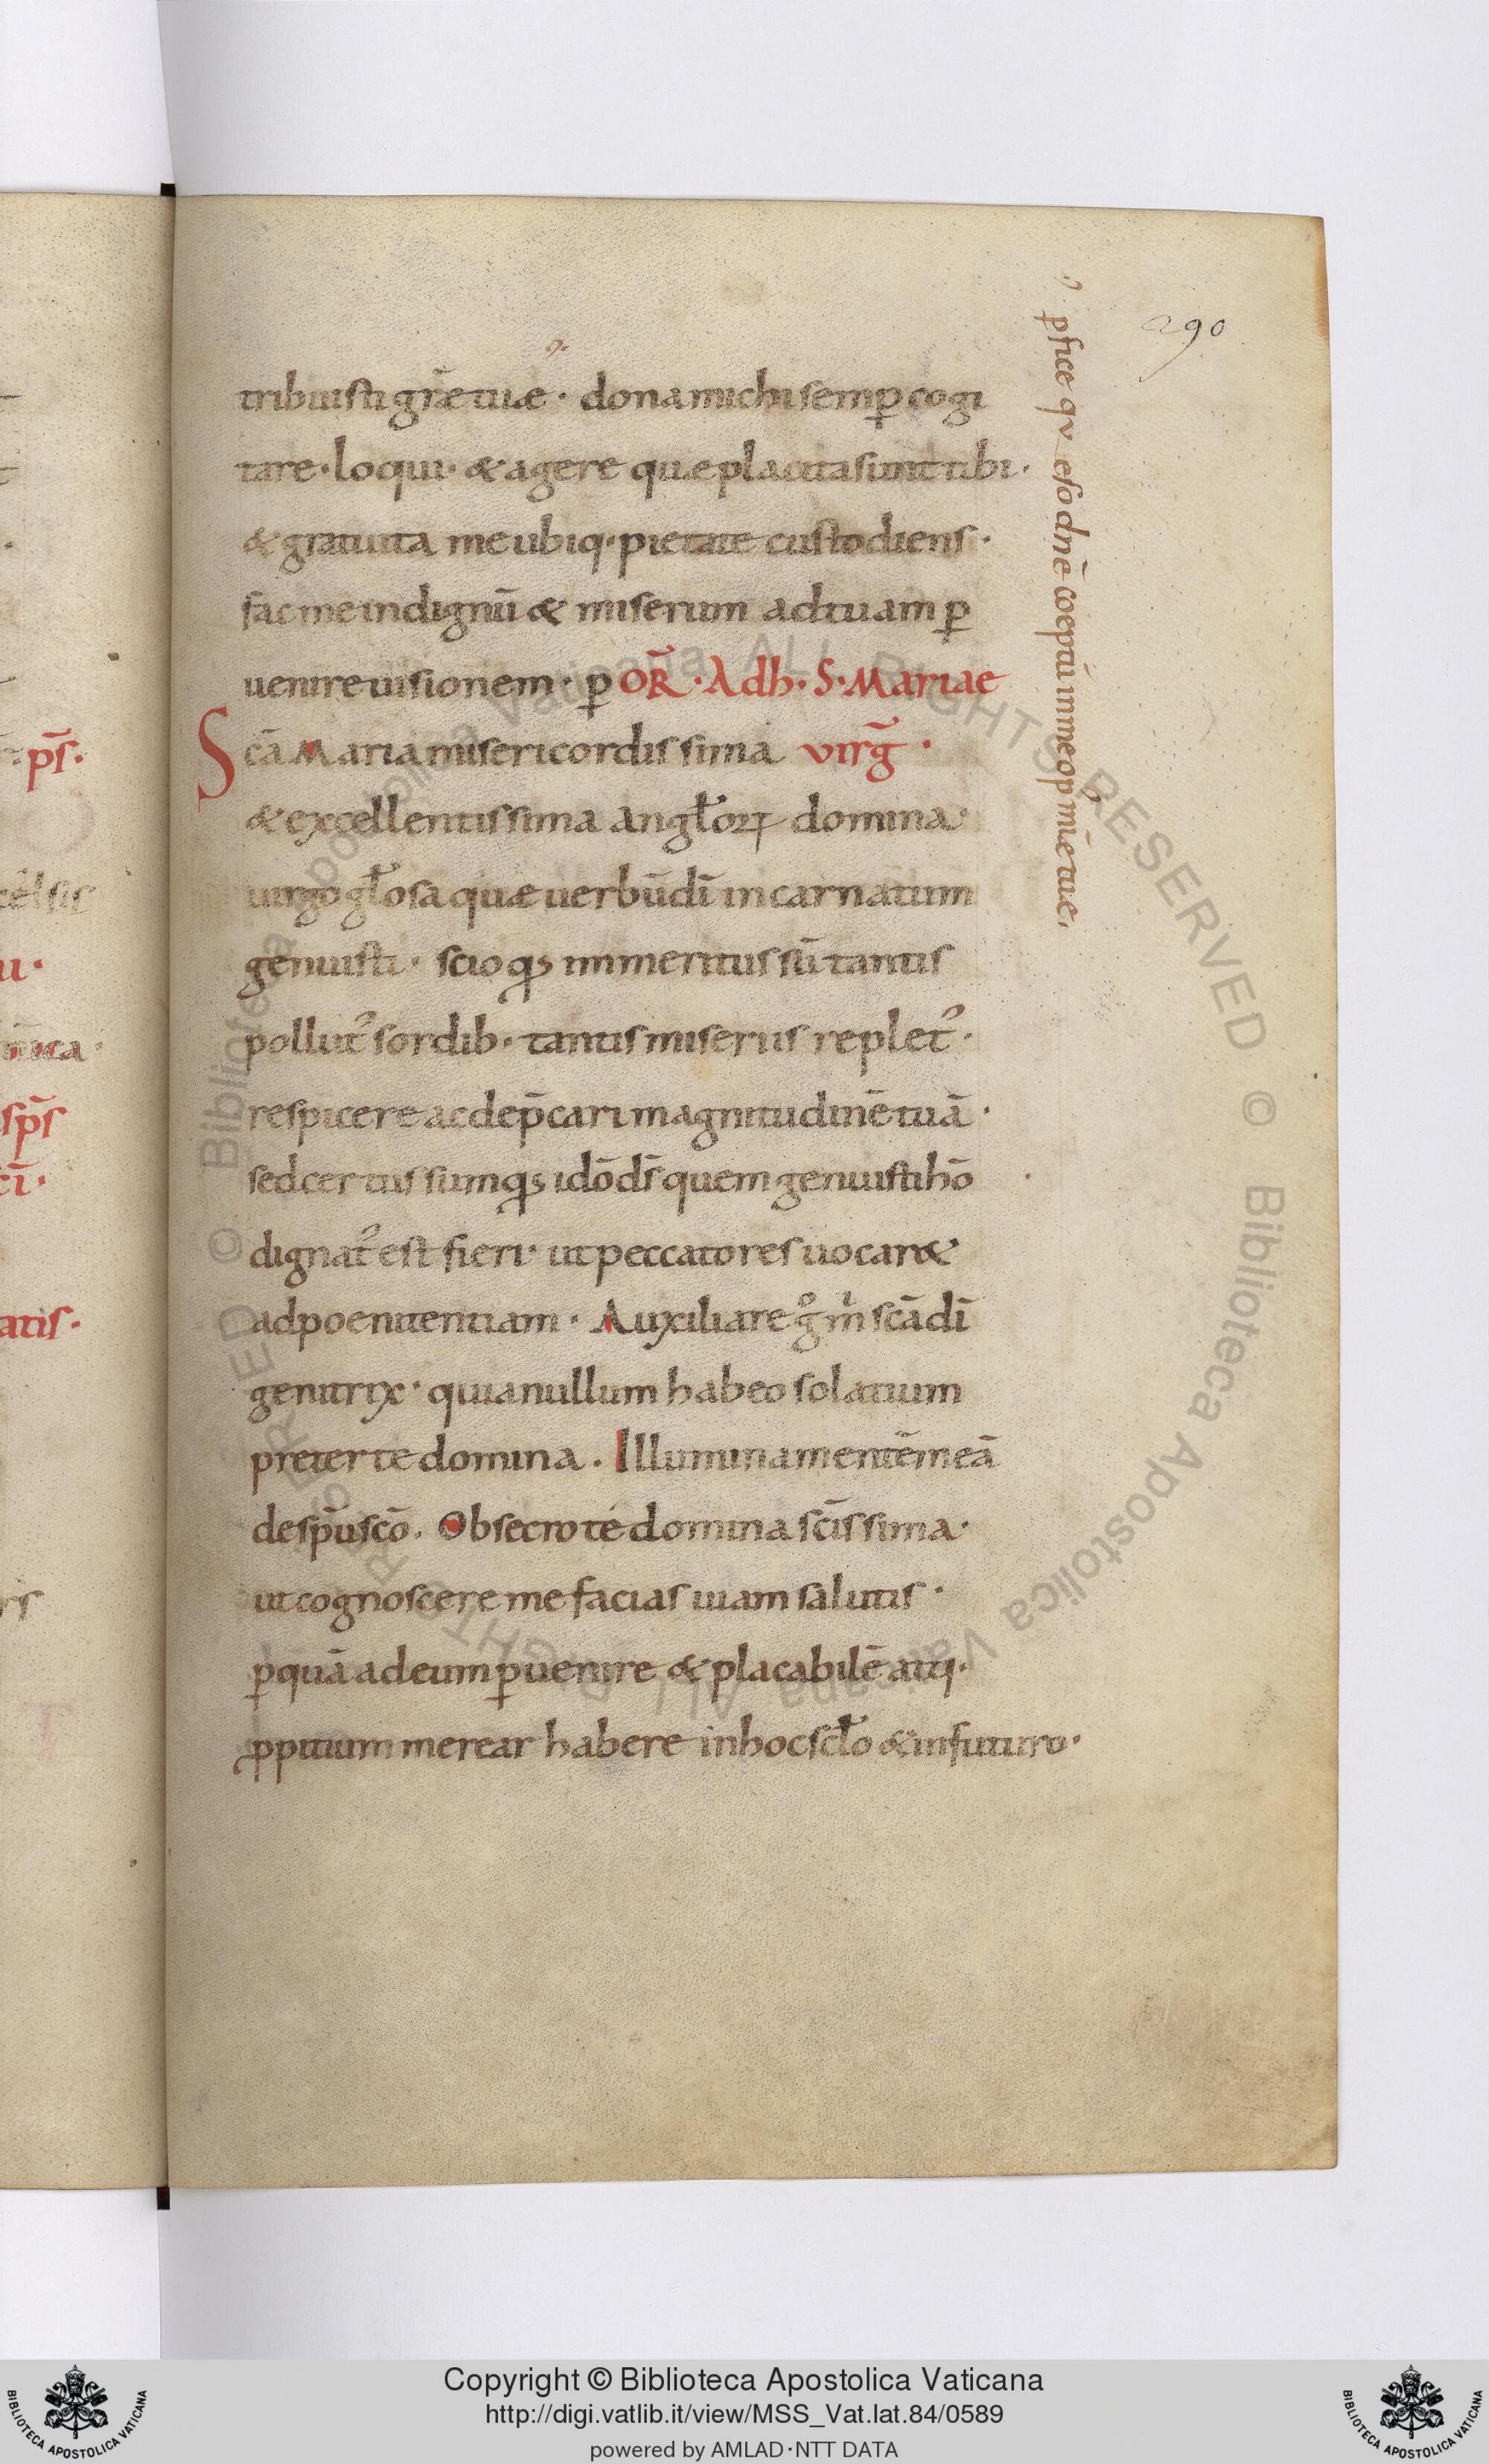 290
tribuisti gr̄e tuę · dona michi semꝑ cogi
tare · loqui · & agere quę placita sunt tibi ·
& gratuita me ubiq· pietate custodiens ·
fac me indignū & miserum ad tuam ꝑ
uenire uisionem · ꝑ OR̄ · Adh · S · Mariae
Scā Maria misericordissima virḡ ·
& excellentissima angl̄oꝝ domina ·
uirgo gl̄osa quę uerbū dī incarnatum
genuisti · scio qꝫ immeritus sū tantis
pollutꝰ sordib· tantis miseriis repletꝰ ·
respicere ac dep̄cari magnitudinē tuā ·
sed certus sum qꝫ idō ds̄ quem genuisti hō
dignatꝰ est fieri · ut peccatores uocar&
ad poenitentiam · Auxiliare gͦ m̍ scā dī
genitrix · quia nullum habeo solatium
preter te domina . Illumina mentē meā
de sp̄u scō . Obsecro te domina scīssima ·
ut cognoscere me facias uiam salutis ·
ꝑ quā ad eum ꝑuenire & placabilē atq·
ꝓpitium merear habere in hoc scl̄o & in futuro ·
ꝑfice qv eso dn̄e coeptū in me op̄ mīe tue .
pš ·
u ·
spš
cī ·
atis ·
Copyright © Biblioteca Apostolica Vaticana
http://digi.vatlib.it/view/MSS_Vat.lat.84/0589
powered by AMLAD·NTT DATA
BIBLIOTECA APOSTOLICA VATICANA
BIBLIOTECA APOSTOLICA VATICANA
© Biblioteca Apostolica Vaticana ALL RIGHTS RESERVED © Biblioteca Apostolica Vaticana ALL RIGHTS RESERVED